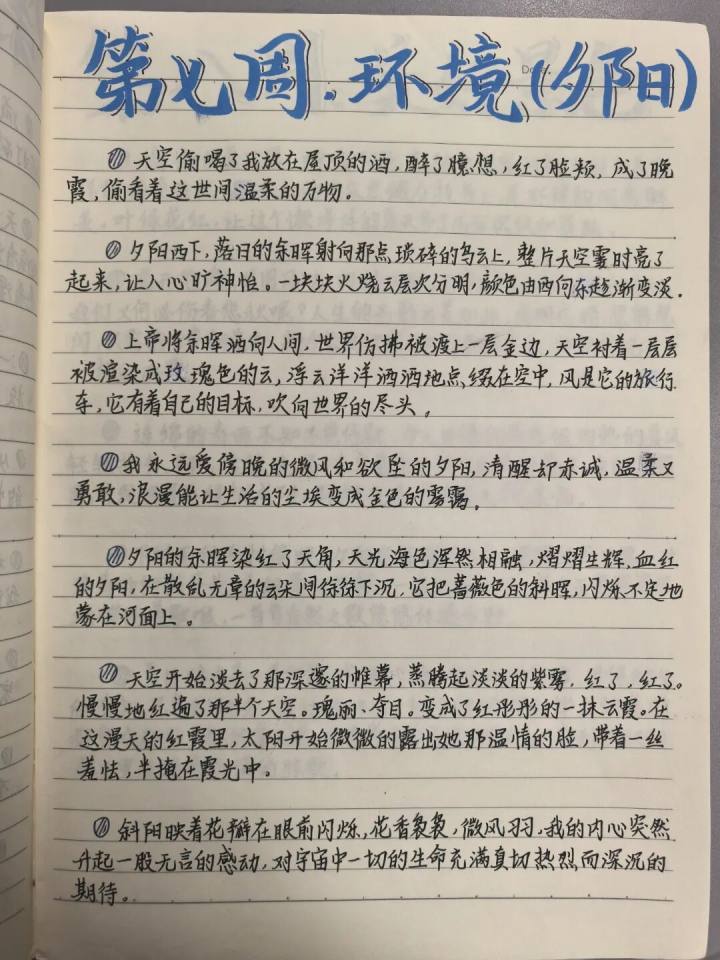 第七周.环境(夕阳)
Date.
天空偷喝了我放在屋顶的酒,醉了臆想,红了脸颊,成了晚
霞,偷看着这世间温柔的万物。
夕阳西下,落日的余晖射向那点琐碎的乌云上,整片天空霎时亮了
起来,让人心旷神怡。一块块火烧云层次分明,颜色由西向东越渐变淡.
上帝将余晖洒向人间,世界仿拂被渡上一层金边,天空衬着一层层
被渲染成玫瑰色的云,浮云洋洋洒洒地点缀在空中,风是它的旅行
车,它有着自己的目标,吹向世界的尽头。
我永远爱傍晚的微风和欲坠的夕阳,清醒却赤诚,温柔又
勇敢,浪漫能让生活的尘埃变成金色的雾霭。
夕阳的余晖染红了天角,天光海色浑然相融,熠熠生辉,血红
的夕阳,在散乱无章的云朵间徐徐下沉,它把蔷薇色的斜晖,闪烁不定地
蒙在河面上。
天空开始淡去了那深邃的帷幕,蒸腾起淡淡的紫雾.红了,红了。
慢慢地红遍了那半个天空。瑰丽、夺目。变成了红彤彤的一抹云霞。在
这漫天的红霞里,太阳开始微微的露出她那温情的脸,带着一丝
羞怯,半掩在霞光中。
斜阳映着花瓣在眼前闪烁,花香袅袅,微风习习,我的内心突然
升起一股无言的感动,对宇宙中一切的生命充满真切热烈而深沉的
期待。